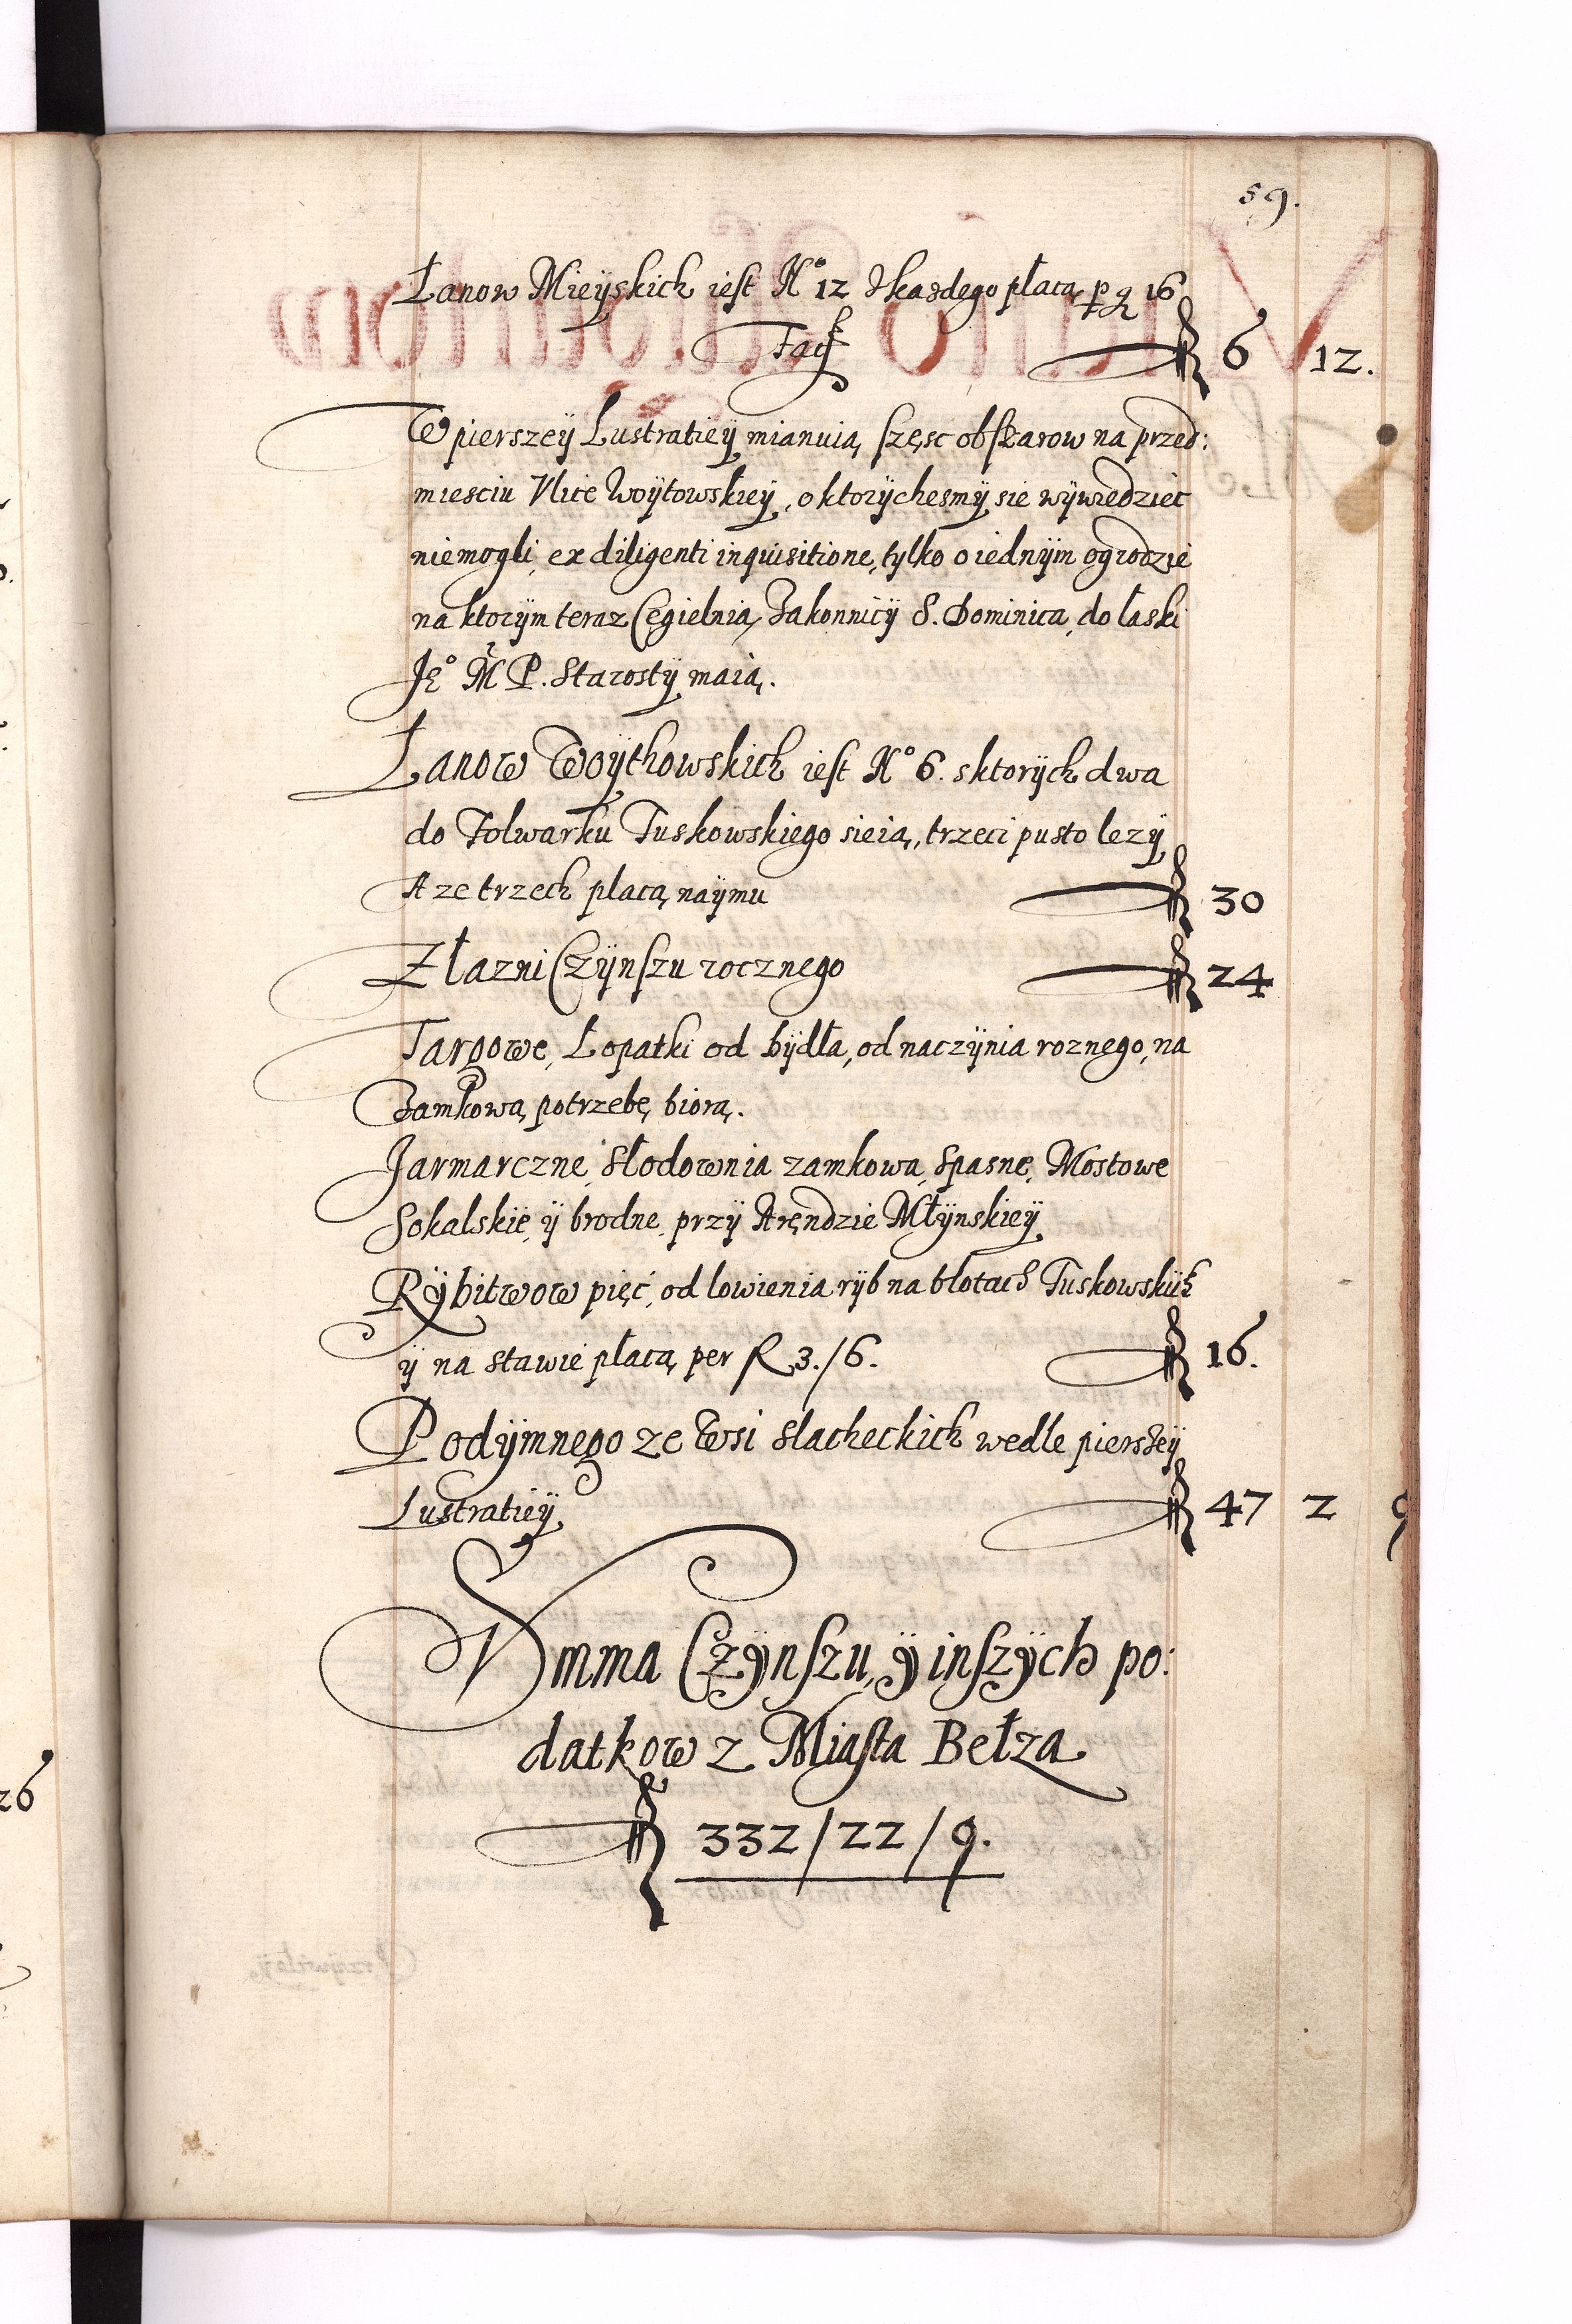 59.
Łanow Mieÿskich iest No 12 Zkazdego płacą p g 16
Facit 6 12.
W pierszeÿ Lustratieÿ mianuią szesc obszarow na przed:
miesciu Vlice Woÿtowskieÿ, o ktorÿchesmÿ sie wÿwiedziec
niemogli, ex diligenti inquisitione, tylko o iednÿm ogrodzie
na ktorÿm teraz Cegielnia, Zakonnicÿ S. Dominica, do łaski
Jeo M P. Starostÿ maią.
Łanow Woÿthowskich iest No 6. sktorÿch dwa
do Folwarku Tuskowskiego sieią, trzeci pusto lezÿ
A ze trzech płacą naÿmu 30
Z Łazni Czÿnszu rocznego 24
Targowe, Łopatki od bÿdła, od naczÿnia roznego, na
Zamkową potrzebę biorą.
Jarmarczne, Słodownia zamkowa, Spasne, Mostowe
Sokalskie, ÿ brodne, przÿ Arędzie Młÿnskieÿ
Rÿbitwow pięć, od lowienia rÿb na błotach Tuskowskich
ÿ na stawie płacą per f 3./6. 16.
Podÿmnego ze Wsi slacheckich wedle pierszeÿ
Lustratieÿ 47 2 9
Summa Czÿnszu, ÿ inszÿch po:
datkow z Miasta Bełza
332/22/9.